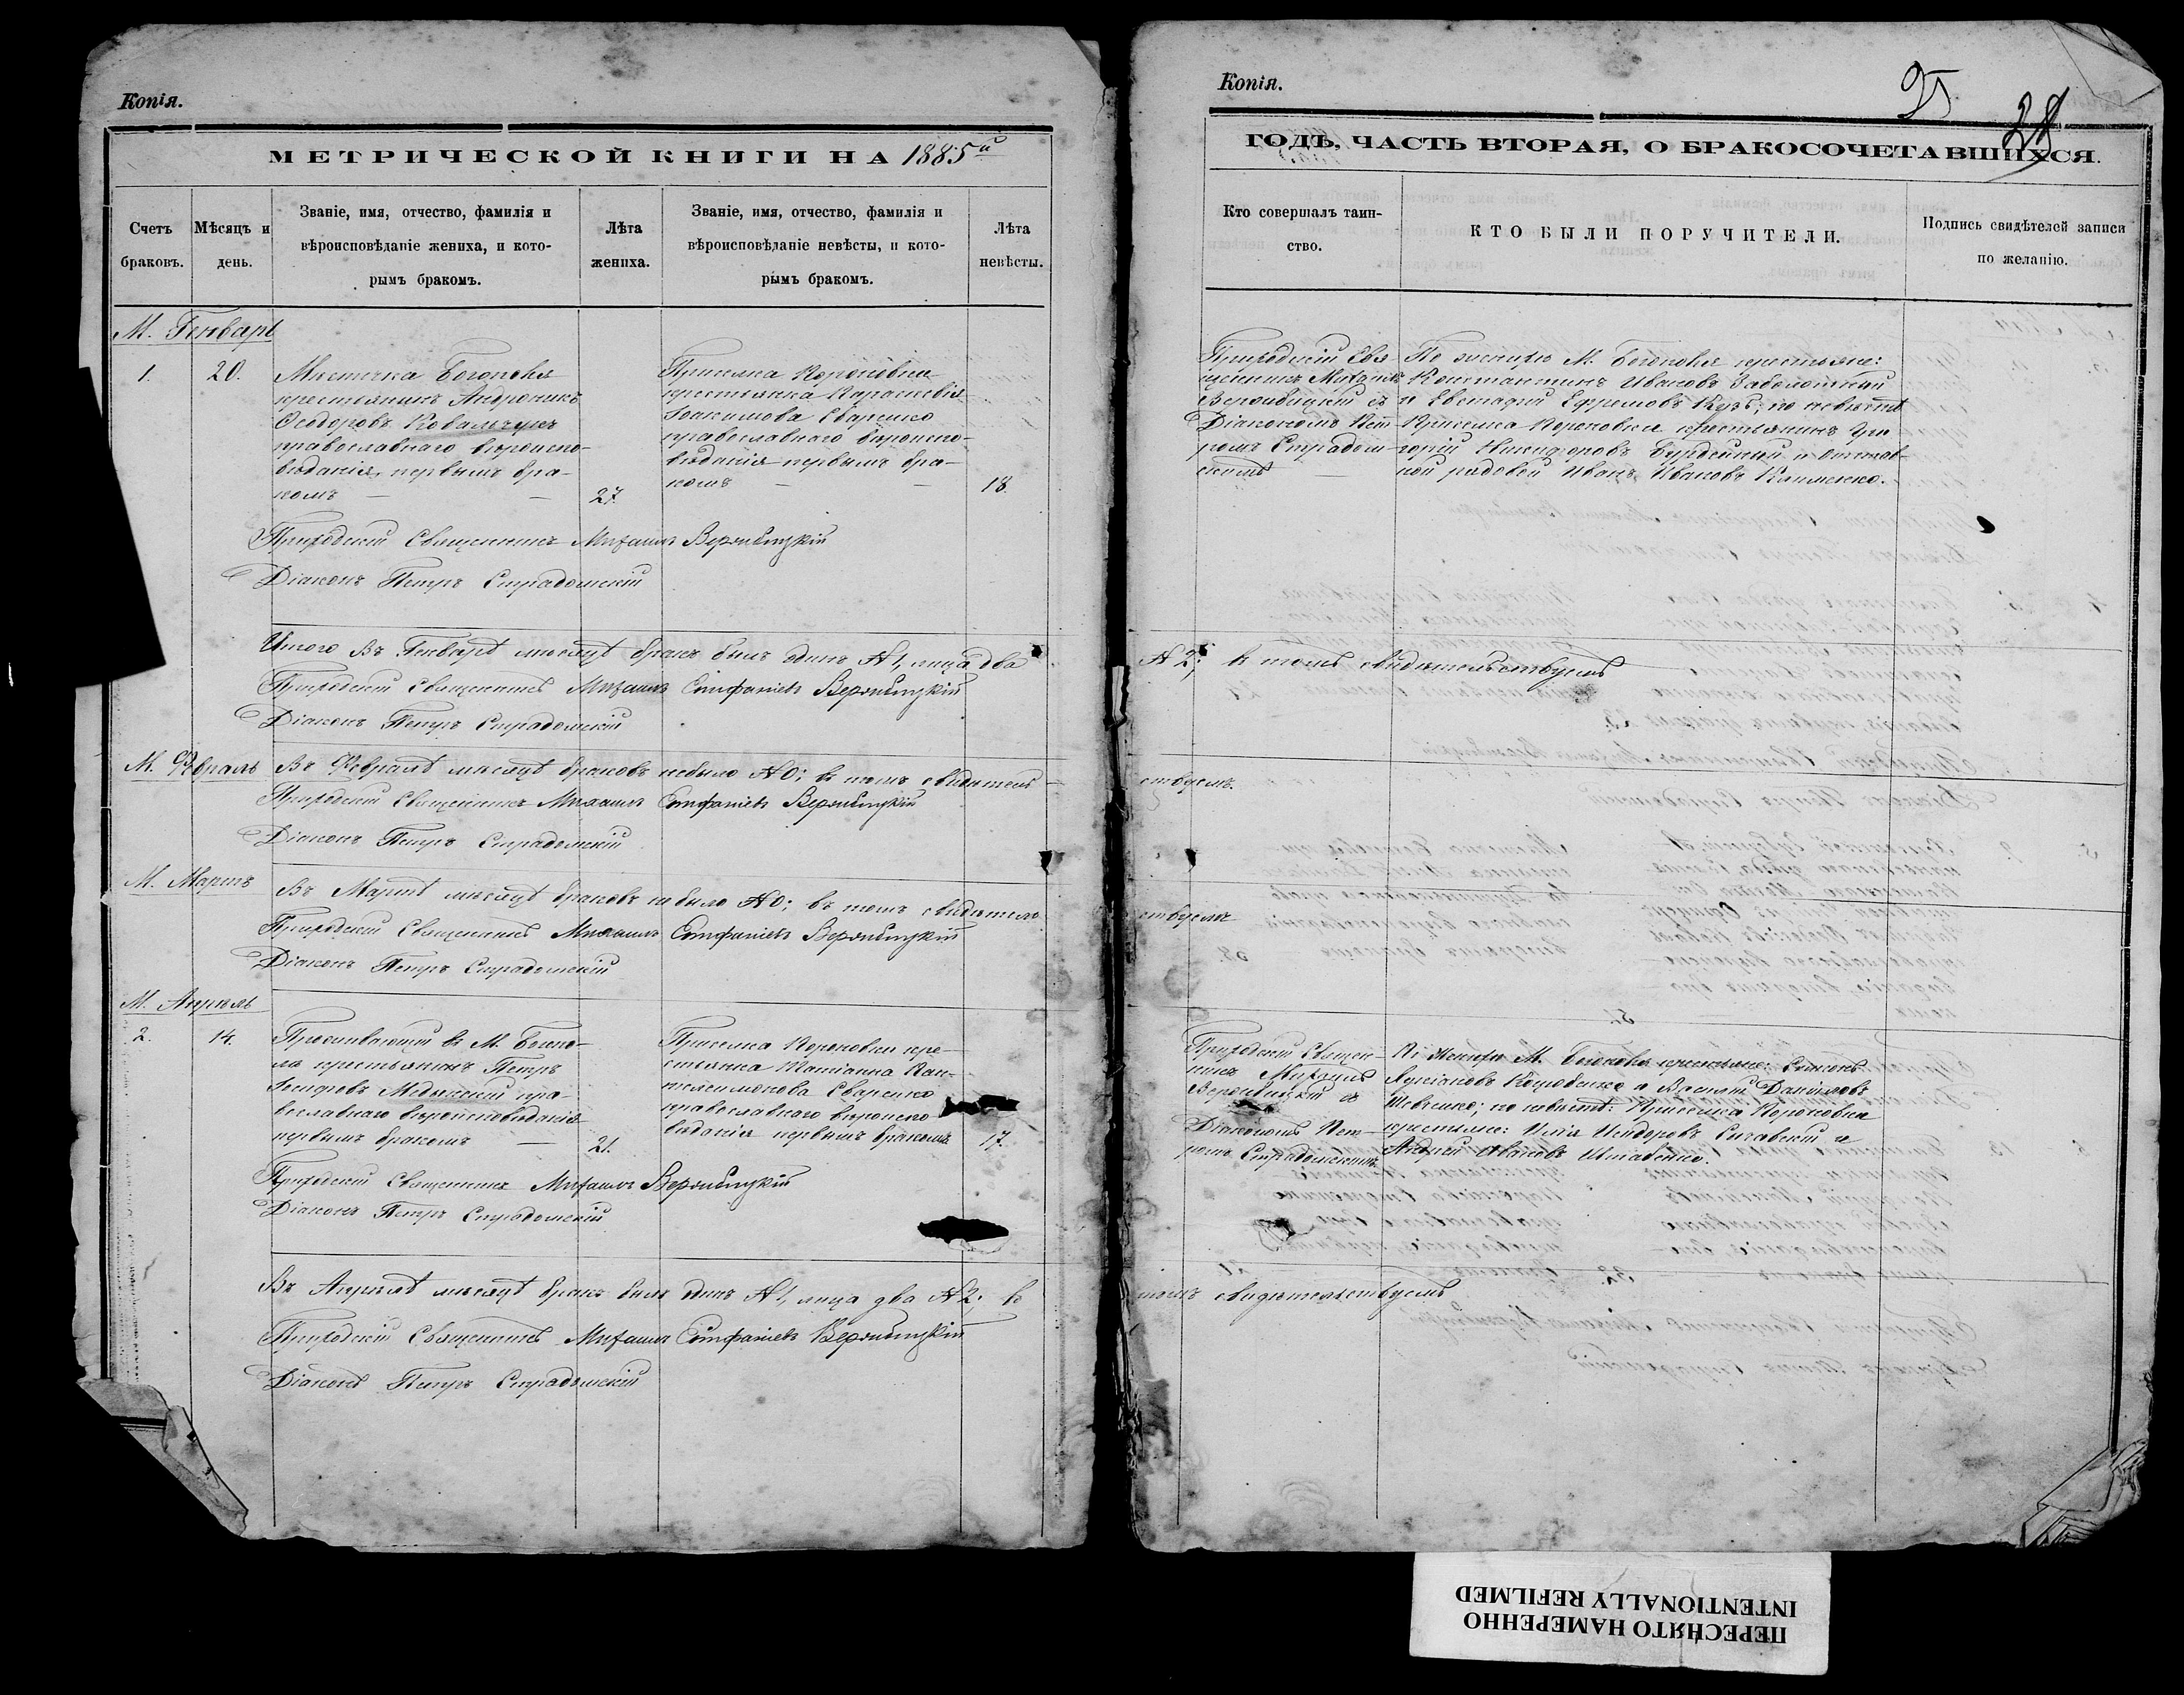 Копія.
МЕТРИЧЕСКОЙ КНИГИ НА 1885й
Счетъ браковъ.
Мѣсяцъ и день.
Званіе, имя, отчество, фамилія и вѣроисповѣданіе жениха, и которымъ бракомъ.
Лѣта жениха.
Званіе, имя, отчество, фамилія и вѣроисповѣданіе невѣсты, и которымъ бракомъ.
Лѣта невѣсты.
М. Генварь
1.
20.
Мѣстечка Богополя
крестьянинъ Андроникъ
Ѳеодоровъ Ковальчукъ
православнаго вѣроиспо-
вѣданія, первымъ бра-
комъ —
27.
Приселка Короновки
крестьянка Параскевія
Іоакимова Сваренко
православнаго вѣроиспо-
вѣданія первымъ бра-
комъ —
18.
Приходскій Священникъ Михаилъ Вержбицкій
Діаконъ Петръ Страдомскій
Итого Въ Генварѣ мѣсяцѣ бракъ былъ одинъ №1, лица два
Приходскій Священникъ Михаилъ Стефаніевъ Вержбицкій
Діаконъ Петръ Страдомскій
М. Февраль
Въ Февралѣ мѣсяцѣ браковъ небыло №0; въ томъ свидѣтель-
Приходскій Священникъ Михаилъ Стефаніевъ Вержбицкій
Діаконъ Петръ Страдомскій
М. Мартъ
Въ Мартѣ мѣсяцѣ браковъ небыло №0; въ томъ свидѣтель-
Приходскій Священникъ Михаилъ Стефаніевъ Вержбицкій
Діаконъ Петръ Страдомскій
М. Апрѣль
2.
14.
Проживающій въ М. Богопо-
ля крестьянинъ Петръ
православнаго вѣроисповѣданія
первымъ бракомъ —
21.
Приселка Короновки кре-
стьянка Татіанна Пан-
телеимонова Сваренко
православнаго вѣроиспо-
вѣданія первымъ бракомъ
17.
Приходскій Священникъ Михаилъ Вержбицкій
Діаконъ Петръ Страдомскій
Въ Апрѣлѣ мѣсяцѣ бракъ былъ одинъ №1, лица два №2; въ
Приходскій Священникъ Михаилъ Стефаніевъ Вержбицкій
Діаконъ Петръ Страдомскій
Копія.
25
28
ГОДЪ, ЧАСТЬ ВТОРАЯ, О БРАКОСОЧЕТАВШИХСЯ.
Кто совершалъ таинство.
КТО БЫЛИ ПОРУЧИТЕЛИ.
Подпись свидѣтелей записи по желанію.
Приходскій Свя-
щенникъ Михаилъ
Вержбицкій съ
Діакономъ Пет-
ромъ Страдом-
скимъ —
По женихѣ М. Богополя крестьяне:
Константинъ Ивановъ Заболотный
и Евстафій Ефремовъ Кузь; по невѣстѣ
Приселка Короновки крестьянинъ Гри-
горій Никифоровъ Бурдейный и отстав-
ной рядовой Иванъ Ивановъ Клименко.
№2; въ томъ свидѣтельствуемъ
ствуемъ.
ствуемъ
Приходскій Священ-
никъ Михаилъ
Вержбицкій съ
Діакономъ Пет-
ромъ Страдомскимъ.
По женихѣ М. Богополя крестьяне: Симеонъ
и Василій Даниловъ
Шевченко; по невѣстѣ: Приселка Короновки
крестьяне: Илія Исидоровъ и
Андрей Ивановъ
томъ свидѣтельствуемъ
ПЕРЕСНЯТО НАМЕРЕННО
INTENTIONALLY REFILMED